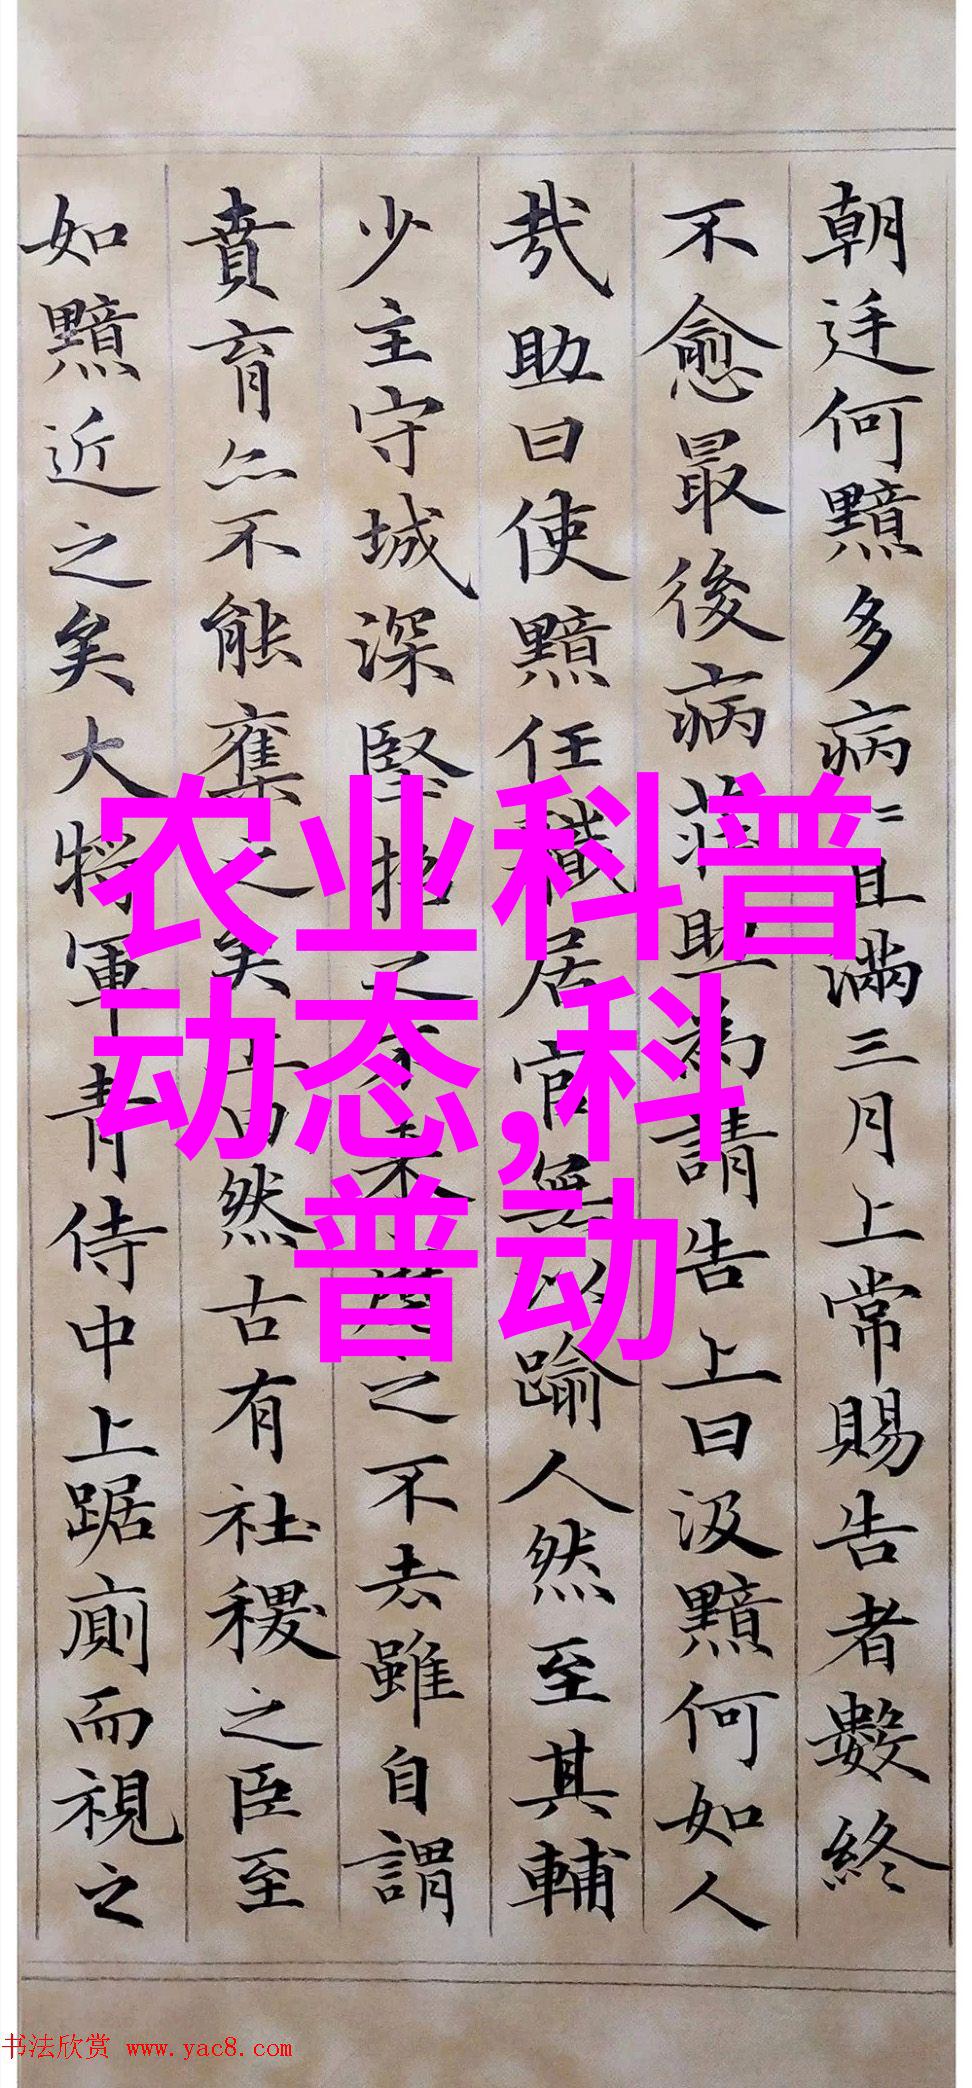 朝廷何黯多病〻且滿三月上常賜告者數終
不愈最後病莊助為請告上曰汲黯何如人
哉助曰使黯任職居官無以踰人然至其輔
少主守城深堅招之不來麾之不去雖自謂
賁育亦不能奪之矣上曰然古有社稷之臣至
如黯近之矣大將軍青侍中上踞廁而視之
农业科普
动态,科
普动
书法欣赏 www.yac8.com